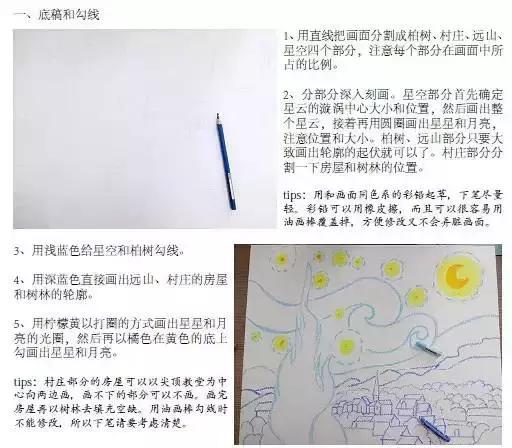 一、底稿和勾线
1、用直线把画面分割成柏树、村庄、远山、
星空四个部分，注意每个部分在画面中所
占的比例。
2、分部分深入刻画。星空部分首先确定
星云的漩涡中心大小和位置，然后画出整
个星云，接着再用圆圈画出星星和月亮，
注意位置和大小。柏树、远山部分只要大
致画出轮廓的起伏就可以了。村庄部分分
割一下房屋和树林的位置。
tips：用和画面同色系的彩铅起草，下笔尽量
轻。彩铅可以用橡皮擦，而且可以很容易用
油画棒覆盖掉，方便修改又不会弄脏画面。
3、用浅蓝色给星空和柏树勾线。
4、用深蓝色直接画出远山、村庄的房屋
和树林的轮廓。
5、用柠檬黄以打圈的方式画出星星和月
亮的光圈，然后再以橘色在黄色的底上
勾画出星星和月亮。
tips：村庄部分的房屋可以以尖顶教堂为中
心向两边画，画不下的部分可以不画。画完
房屋再以树林去填充空缺。用油画棒勾线时
不能修改，所以下笔请要考虑清楚。